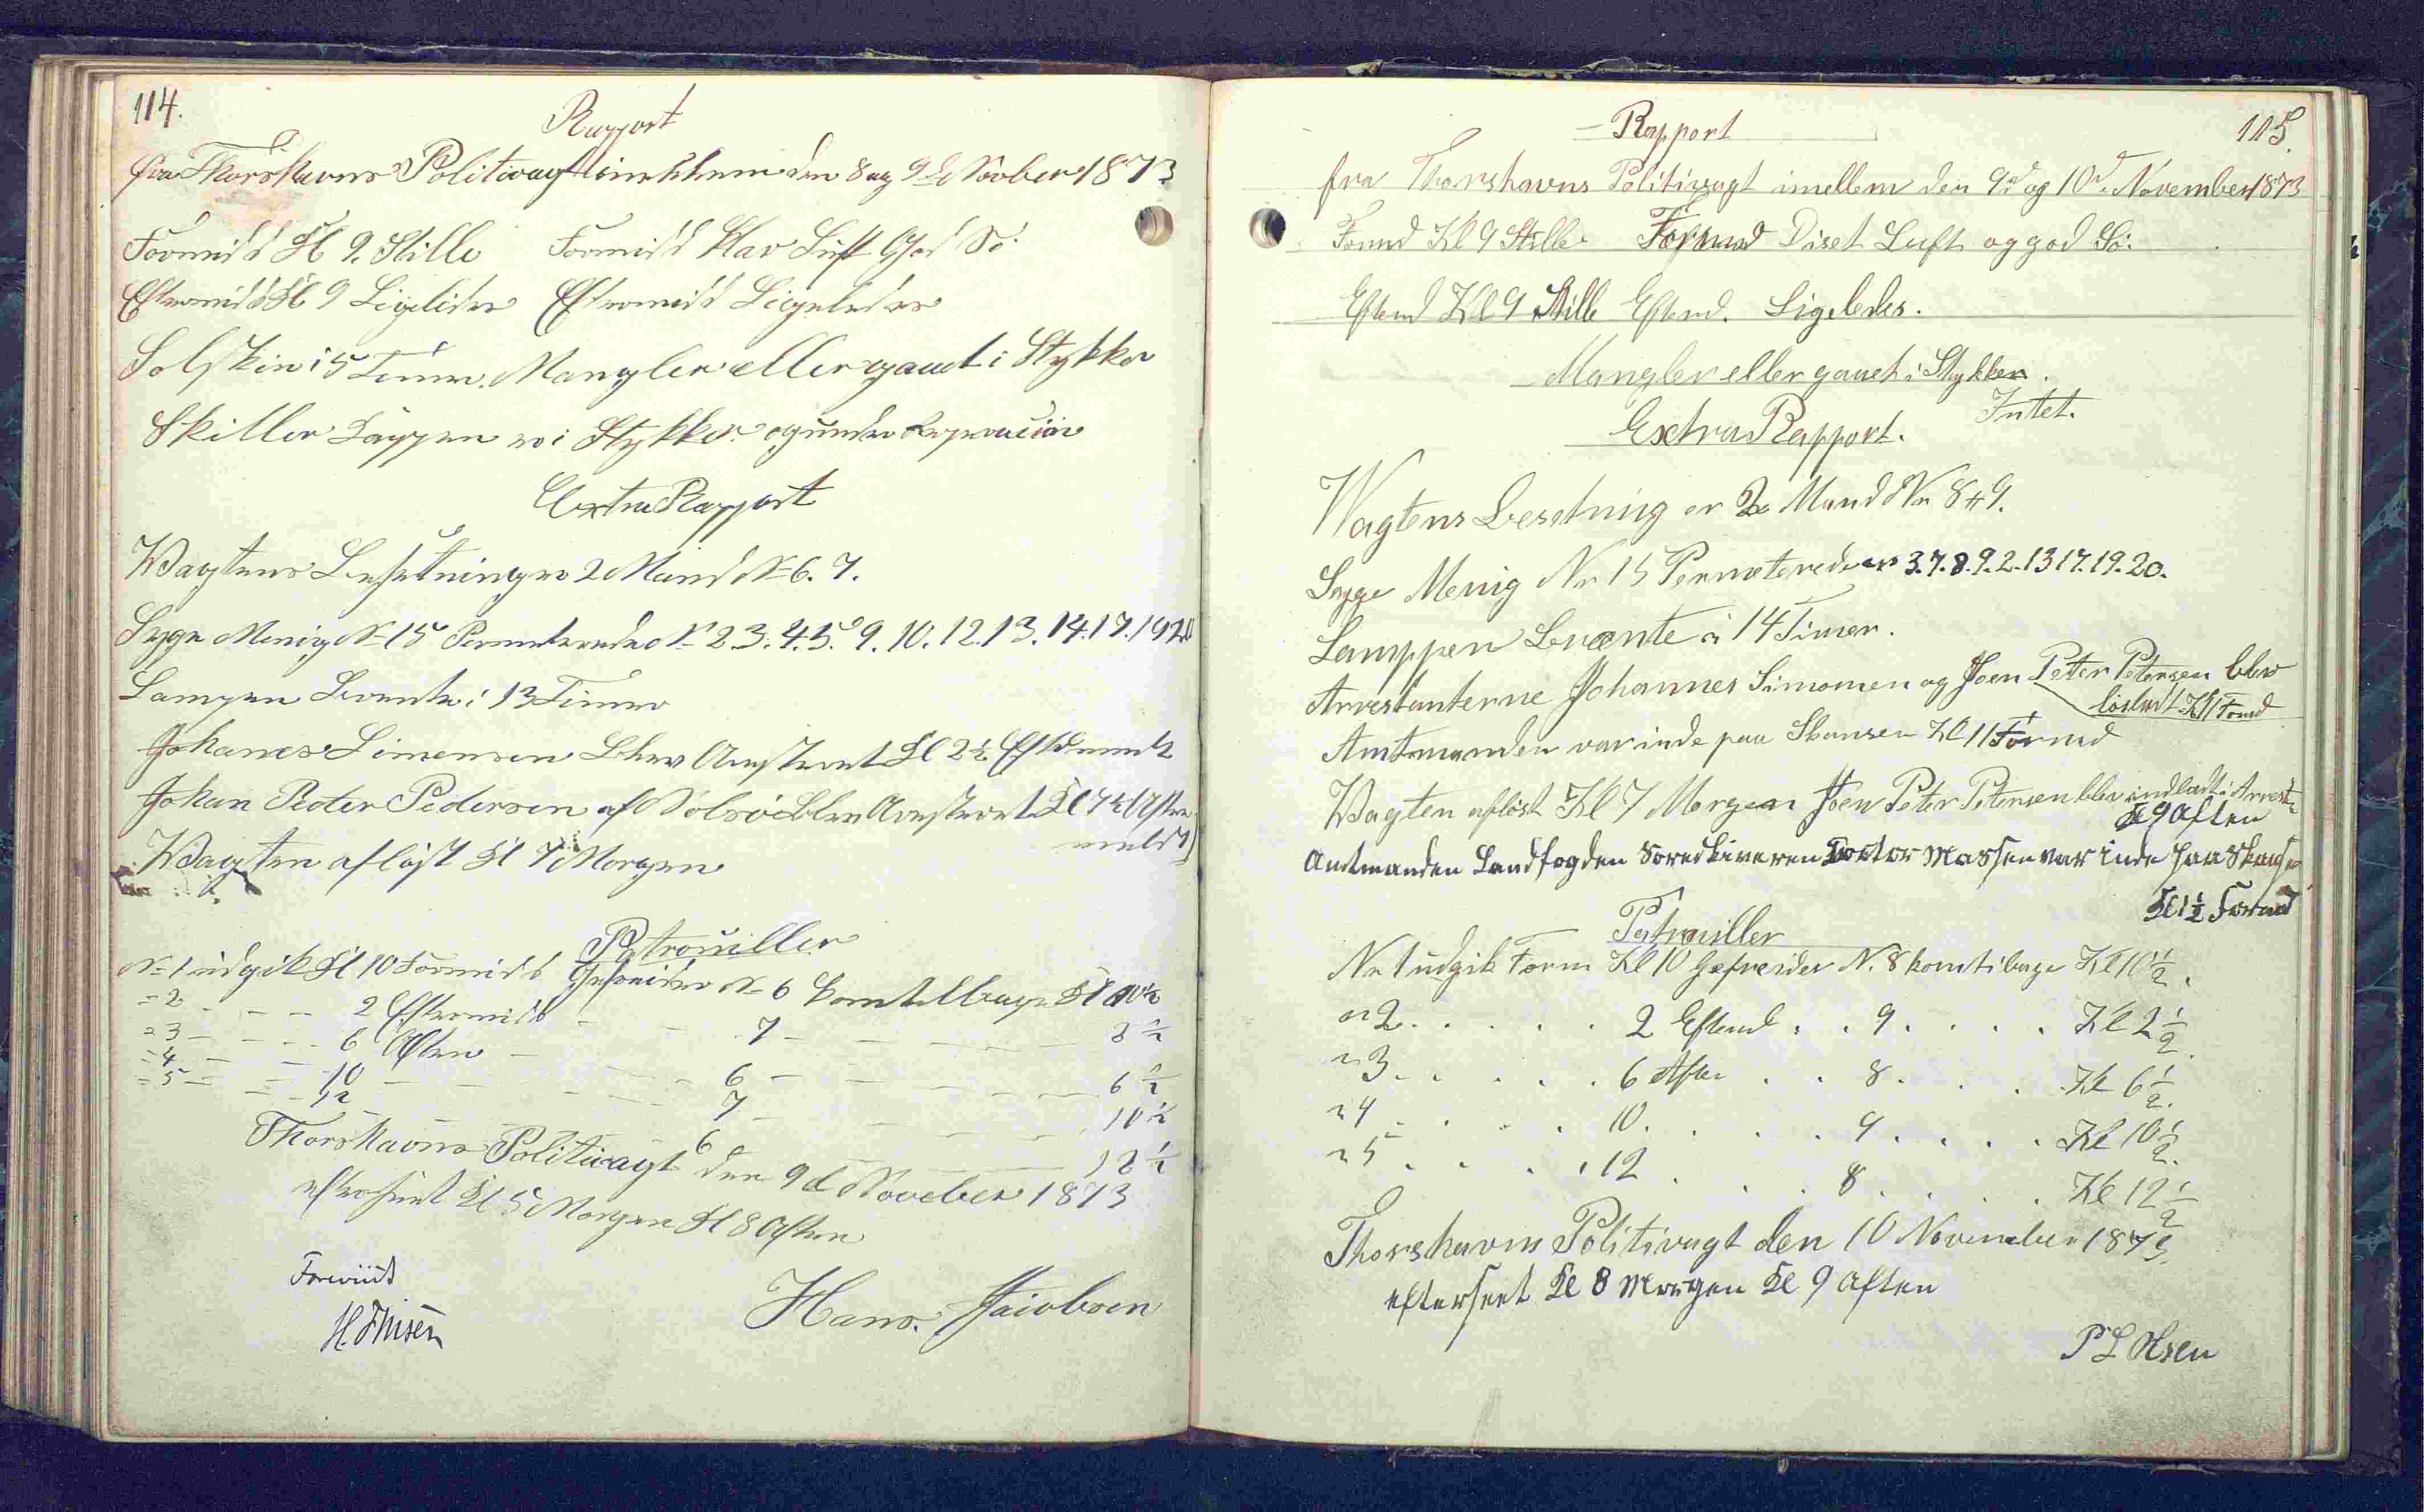 114.
Rapport
fra Thorshavns Politivagt imellem den 8 og 9d Noober 1873
Formidd Kl 9. Stille Formidd Klar Luft God Sö
Eftermidd Kl 9 Ligeledes Eftermidd Ligeledes
Solskin i 5 Timer. Mangler eller gaaet i Stykker
Skiller Lappen er i Stykker og under Reparaciön
Extra Rapport
Wagtens Besetning er 2 Mand N= 6. 7.
Syge Menig N= 15 Permeterede N= 2. 3. 4. 5. 9. 10. 12. 13. 14. 17. 19 20
Lampen Brente i 13 Timer
Johanes Simensen Blev Aresteret Kl 2½ Eftermidt
Johan Peter Pedersen af Nolsö Blev Aresteret Kl 7½ Efter
midt
Wagten aflöst Kl 7 Morgen
Patrouiller
N= 1 udgik Kl 10 Formidd Gefreider N= 6 kom tilbage Kl 10½
= 2 - - - 2 Eftermidd - - 7 - - - 2½
= 3 - - - 6 Aften - - 6 - - - 6½
= 4 - - - 10 - - - 7 - - - 10½
= 5 - - - 12 - - - 6 - - - 12½
Thorshavns Politivagt den 9d Noveber 1873
efterseet Kl 5 Morgen Kl 8 Aften
Foreviist
Hans. Jacobsen
115.
Rapport
fra Thorshavns Politivagt imellem den 9d og 10d. November 1873
Formd Kl 9 Stille Formd Diset Luft og god Sö.
Eftemd Kl 9 Stille Eftemd. Ligeledes.
Mangler eller gaaet i Stykker.
Intet.
Extra Rapport.
Wagtens Besetning er 2 Mand Nr. 8 & 9.
Syge Menig Nr 15 Permeterede er 3. 7. 8. 9. 2. 13 17. 19. 20.
Lamppen Brænte i 14 Timer.
Arrestanterne Johannes Simonsen og Joen Peter Petersen blev
löslat Kl 11 Formd
Amtmanden var inde paa Skansen Kl 11 Formd
Wagten aflöst Kl 7 Morgen Joen Peter Petersen blev indladt i Arresten
Kl 9 Aften
Amtmanden Landfogden Sorenskiveren Docter Massen var inde paa Skansen
Kl 1½ Formd
Patrouiller
Nr 1 udgik Form Kl 10 Gefreider N. 8 kom tilbage Kl 10½.
" 2. . . . . 2 Eftemd . . 9. . . . . Kl 2½.
" 3. . . . . 6 Aften . . 8. . . . . Kl 6½.
" 4 . . . . 10. . . . . 9. . . . . Kl 10½.
" 5 . . . . 12 . . . . 8. . . . . Kl 12½
Thorshavns Politivagt den 10 November 1873.
efterseet Kl 8 Morgen Kl 9 Aften
P L Olsen